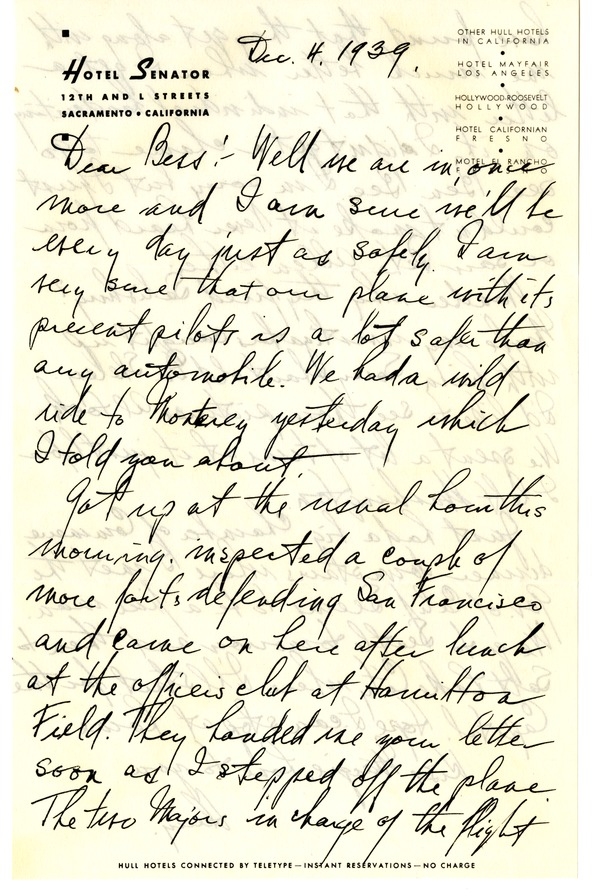 Dec. 4. 1939.
HOTEL SENATOR
12TH AND L STREETS
SACRAMENTO • CALIFORNIA
OTHER HULL HOTELS
IN CALIFORNIA
•
HOTEL MAYFAIR
LOS ANGELES
•
HOLLYWOOD-ROOSEVELT
HOLLYWOOD
•
HOTEL CALIFORNIAN
FRESNO
•
MOTEL EL RANCHO
Dear Bess:- Well we are in, once
more and I am sure we'll be
every day just as safely. I am
very sure that our plane with its
present pilots is a lot safer than
any automobile. We had a wild
ride to Monterey yesterday which
I told you about.
Got up at the usual hour this
morning, inspected a couple of
more forts defending San Francisco
and came on here after lunch
at the officers club at Hamilton
Field. They handed me your letter
soon as I stepped off the plane.
The two Majors in charge of the flight
HULL HOTELS CONNECTED BY TELETYPE—INSTANT RESERVATIONS—NO CHARGE